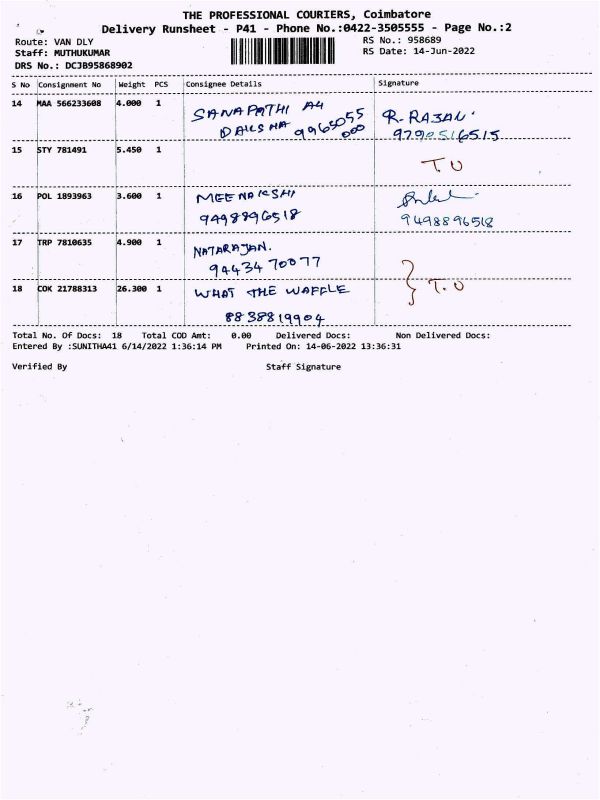 THE PROFESSIONAL COURIERS, Coimbatore
Delivery Runsheet - P41 - Phone No.:0422-3505555 - Page No.:2
Route: VAN DLY
RS No.: 958689
Staff: MUTHUKUMAR
RS Date: 14-Jun-2022
DRS No.: DCJB95868902
S No Consignment No Weight PCS Consignee Details Signature
14 MAA 566233608 4.000 1 SANAPATHI A4 R. RAJAN.
9965055000 9790516515
15 STY 781491 5.450 1
T U
16 POL 1893963 3.600 1 MEENAKSHI
9498896518 9498896518
17 TRP 7810635 4.900 1 NATARAJAN.
94434 70077
18 COK 21788313 26.300 1 WHAT THE WAFFLE } T.U
8838819904
Total No. Of Docs: 18 Total COD Amt: 0.00 Delivered Docs: Non Delivered Docs:
Entered By :SUNITHA41 6/14/2022 1:36:14 PM Printed On: 14-06-2022 13:36:31
Verified By Staff Signature